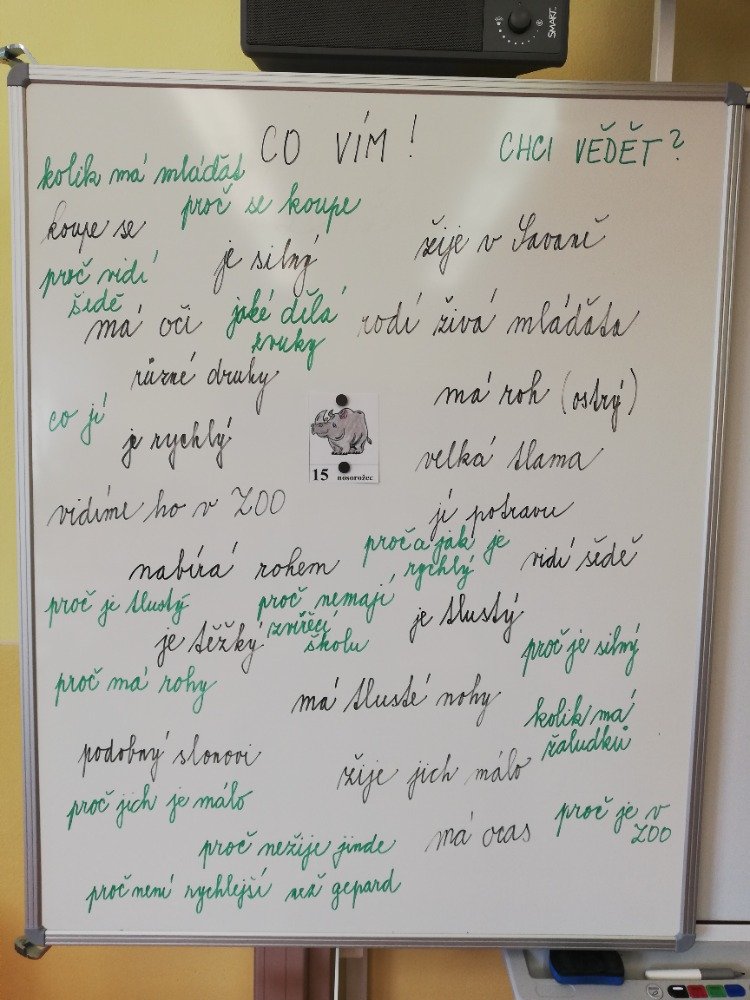 SMART
CO VÍM!
CHCI VĚDĚT?
kolik má mláďat
proč se koupe
koupe se
je silný
žije v Savaně
proč vidí
šedě
má oči
jaké dělá
zvuky
rodí živá mláďata
různé druhy
má roh (ostrý)
co jí
je rychlý
velká tlama
15 nosorožec
vidíme ho v ZOO
jí potravu
nabírá rohem
proč a jak je
rychlý
vidí šedě
proč je tlustý
proč nemají
zvířecí
školu
je tlustý
je těžký
proč je silný
proč má rohy
má tlusté nohy
kolik má
žaludků
podobný slonovi
žije jich málo
proč jich je málo
proč je v
ZOO
má ocas
proč nežije jinde
proč není rychlejší než gepard